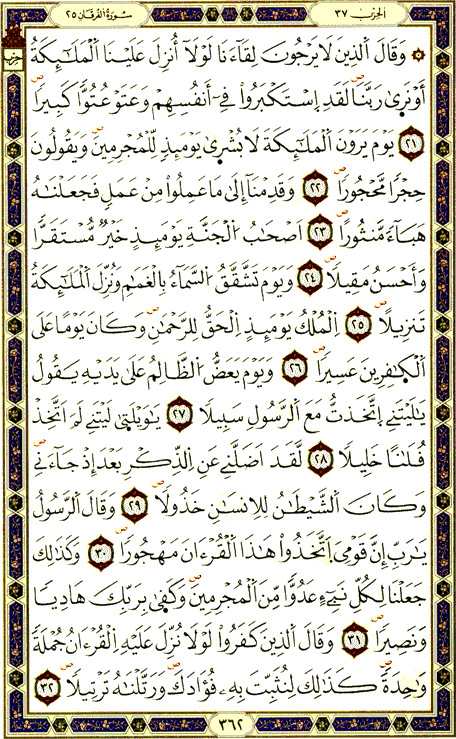 سُورَةُ الْفُرْقَانِ ٢٥
الحِزْبُ ٣٧
حزب
۞ وَقَالَ اَلذِينَ لَا يَرْجُونَ لِقَآءَنَا لَوْلَآ أُنزِلَ عَلَيْنَا اَلْمَلَٰٓئِكَةُ
أَوْ نَرَىٰ رَبَّنَا لَقَدِ اِسْتَكْبَرُوا فِےٓ أَنفُسِهِمْ وَعَتَوْ عُتُوّاً كَبِيراً
٢١ يَوْمَ يَرَوْنَ اَلْمَلَٰٓئِكَةَ لَا بُشْرَىٰ يَوْمَئِذٍ لِّلْمُجْرِمِينَ وَيَقُولُونَ
حِجْراً مَّحْجُوراً ٢٢ وَقَدِمْنَآ إِلَىٰ مَا عَمِلُوا مِنْ عَمَلٍ فَجَعَلْنَٰهُ
هَبَآءً مَّنثُوراً ٢٣ اَصْحَٰبُ اُلْجَنَّةِ يَوْمَئِذٍ خَيْرٌ مُّسْتَقَرّاً
وَأَحْسَنُ مَقِيلاً ٢٤ وَيَوْمَ تَشَّقَّقُ اُلسَّمَآءُ بِالْغَمَٰمِ وَنُزِّلَ اَلْمَلَٰٓئِكَةُ
تَنزِيلاً ٢٥ اِلْمُلْكُ يَوْمَئِذٍ اِلْحَقُّ لِلرَّحْمَٰنِ وَكَانَ يَوْماً عَلَى
اَلْكَٰفِرِينَ عَسِيراً ٢٦ وَيَوْمَ يَعَضُّ اُلظَّالِمُ عَلَىٰ يَدَيْهِ يَقُولُ
يَٰلَيْتَنِے اِتَّخَذتُّ مَعَ اَلرَّسُولِ سَبِيلاً ٢٧ يَٰوَيْلَتَىٰ لَيْتَنِے لَمَ اَتَّخِذْ
فُلَاناً خَلِيلاً ٢٨ لَّقَدَ اَضَلَّنِے عَنِ اِلذِّكْرِ بَعْدَ إِذْ جَآءَنِے
وَكَانَ اَلشَّيْطَٰنُ لِلِانسَٰنِ خَذُولاً ٢٩ وَقَالَ اَلرَّسُولُ
يَٰرَبِّ إِنَّ قَوْمِيَ اَتَّخَذُوا هَٰذَا اَلْقُرْءَانَ مَهْجُوراً ٣٠ وَكَذَٰلِكَ
جَعَلْنَا لِكُلِّ نَبِےٓءٍ عَدُوّاً مِّنَ اَلْمُجْرِمِينَ وَكَفَىٰ بِرَبِّكَ هَادِياً
وَنَصِيراً ٣١ وَقَالَ اَلذِينَ كَفَرُوا لَوْلَا نُزِّلَ عَلَيْهِ اِلْقُرْءَانُ جُمْلَةً
وَٰحِدَةً كَذَٰلِكَ لِنُثَبِّتَ بِهِۦ فُؤَادَكَ وَرَتَّلْنَٰهُ تَرْتِيلاً ٣٢
٣٦٢